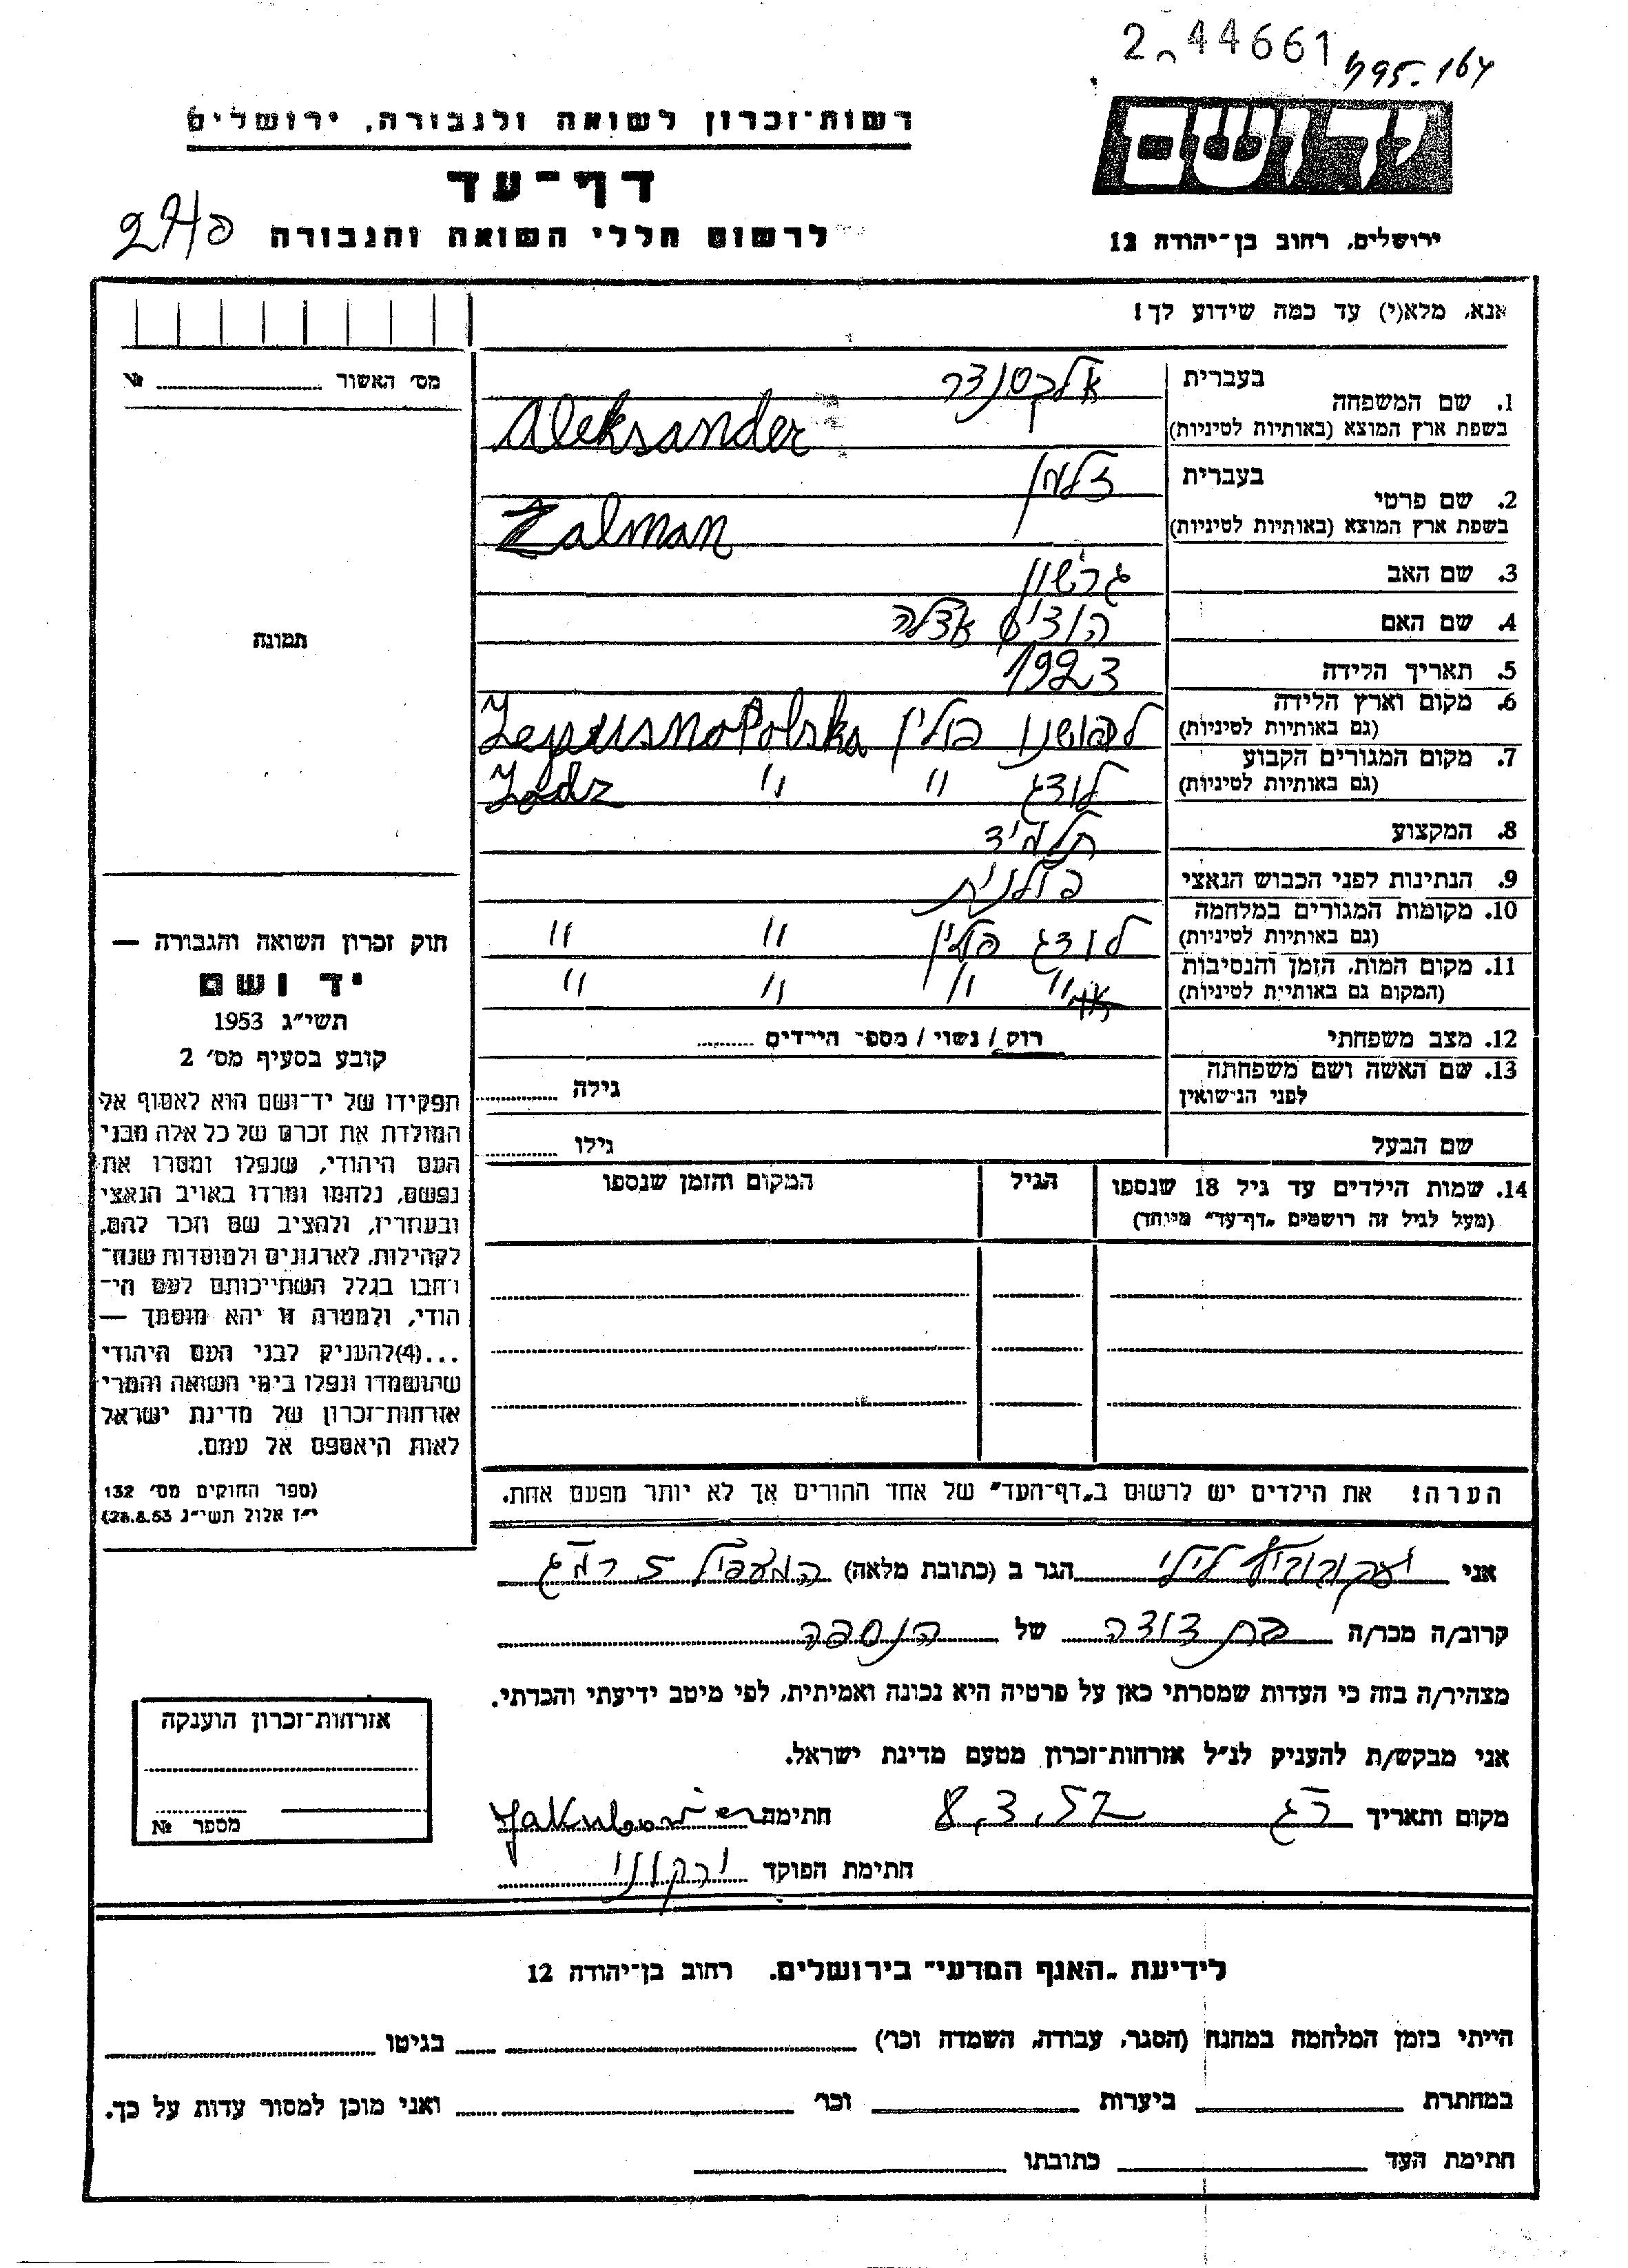 2 44661
495.164
רשות־זכרון לשואה ולגבורה, ירושלים
דף־עד
לרשום חללי השואה והגבורה
ידושם
ירושלים, רחוב בן־יהודה 12
אנא, מלא(י) עד כמה שידוע לך!
מס׳ האשור ........ №
תמונה
1. שם המשפחה
בעברית אלכסנדר
בשפת ארץ המוצא (באותיות לטיניות) Aleksander
2. שם פרטי
בעברית זלמן
בשפת ארץ המוצא (באותיות לטיניות) Zalman
3. שם האב גרשון
4. שם האם אדלה
5. תאריך הלידה 1923
6. מקום וארץ הלידה
(גם באותיות לטיניות) לפושנו פולין Lepusno Polska
7. מקום המגורים הקבוע
(גם באותיות לטיניות) לודג " " Lodz
8. המקצוע תלמיד
9. הנתינות לפני הכבוש הנאצי פולנית
10. מקומות המגורים במלחמה
(גם באותיות לטיניות) לודג פולין " "
11. מקום המות, הזמן והנסיבות
(המקום גם באותיית לטיניות) " " " "
12. מצב משפחתי רוק / נשוי / מספר הילדים ........
13. שם האשה ושם משפחתה
לפני הנישואין גילה ........
שם הבעל גילו ........
14. שמות הילדים עד גיל 18 שנספו
(מעל לגיל זה רושמים „דף־עד" מיוחד)
הגיל
המקום והזמן שנספו
חוק זכרון השואה והגבורה —
יד ושם
תשי״ג 1953
קובע בסעיף מס׳ 2
תפקידו של יד־ושם הוא לאסוף אל
המולדת את זכרם של כל אלה מבני
העם היהודי, שנפלו ומסרו את
נפשם, נלחמו ומרדו באויב הנאצי
ובעוזריו, ולהציב שם וזכר להם,
לקהילות, לארגונים ולמוסדות שנח־
רחבו בגלל השתייכותם לעם הי־
הודי, ולמטרה זו יהא מוסמך —
...(4)להעניק לבני העם היהודי
שהושמדו ונפלו בימי השואה והמרי
אזרחות־זכרון של מדינת ישראל
לאות היאספם אל עמם.
(ספר החוקים מס׳ 132
י״ז אלול תשי״ג 28.8.53)
הערה! את הילדים יש לרשום ב„דף־העד" של אחד ההורים אך לא יותר מפעם אחת.
אני יעקובוביץ לילי הגר ב (כתובת מלאה) המעפיל 5 רמג
קרוב/ה מכר/ה בת דודה של הנספה
מצהיר/ה בזה כי העדות שמסרתי כאן על פרטיה היא נכונה ואמיתית, לפי מיטב ידיעתי והכרתי.
אני מבקש/ת להעניק לנ״ל אזרחות־זכרון מטעם מדינת ישראל.
מקום ותאריך רג 8.3.57 חתימה
חתימת הפוקד ירקוני
אזרחות־זכרון הוענקה
מספר №
לידיעת „האגף המדעי" בירושלים. רחוב בן־יהודה 12
הייתי בזמן המלחמה במחנה (הסגר, עבודה, השמדה וכו׳) ........ בגיטו ........
במחתרת ........ ביערות ........ וכו׳ ........ ואני מוכן למסור עדות על כך.
חתימת העד ........ כתובתו ........